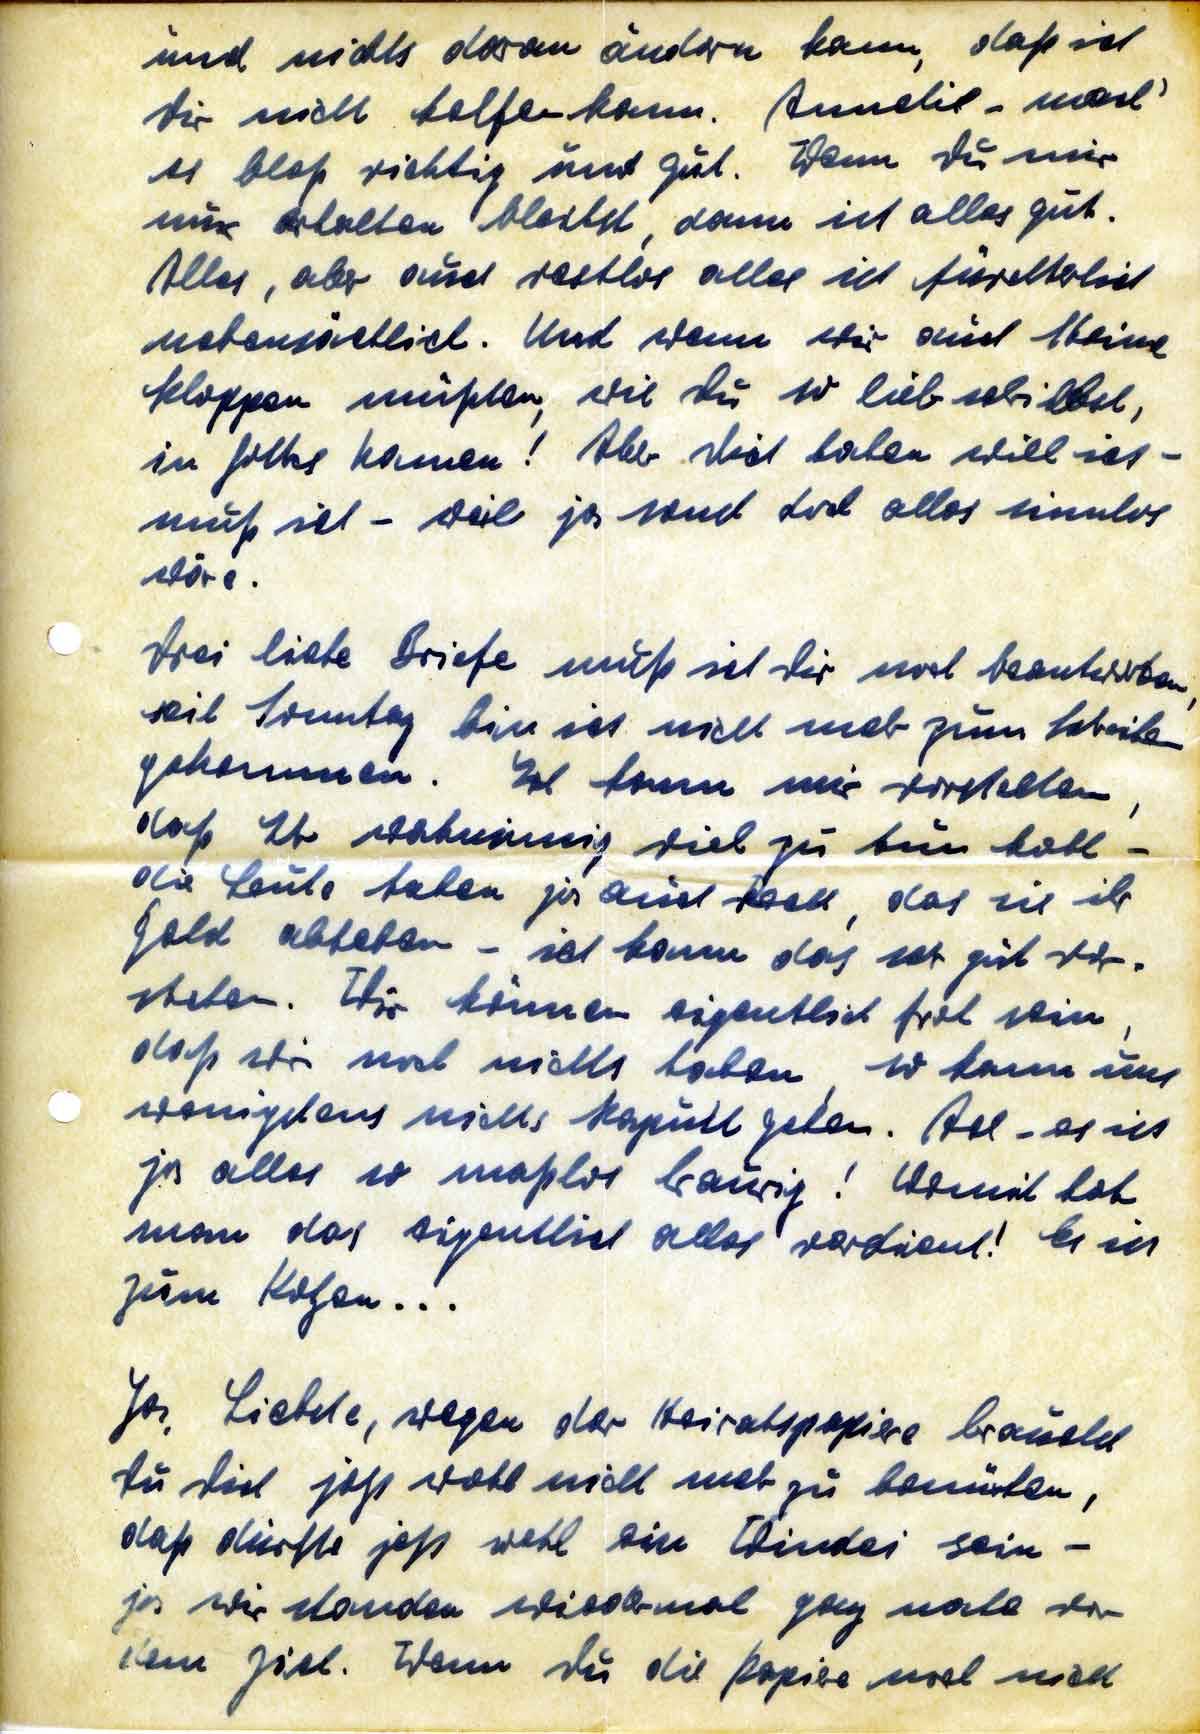 und nichts daran ändern kann, daß ich
Dir nicht helfen kann. Annelie - mach'
es bloß richtig und gut. Wenn Du mir
nur erhalten bleibst, dann ist alles gut.
Alles, aber auch restlos alles ist fürchterlich
nebensächlich. Und wenn wir auch Steine
kloppen müßten, wie Du so lieb schreibst,
in Gottes Namen! Aber Dich haben will ich -
muß ich - weil ja sonst doch alles sinnlos
wäre.
Drei liebe Briefe muß ich Dir noch beantworten,
seit Sonntag bin ich nicht mehr zum Schreiben
gekommen. Ich kann mir vorstellen,
daß Ihr wahnsinnig viel zu tun habt -
die Leute haben ja auch Recht, das sie ihr
Geld abheben - ich kann das sehr gut ver-
stehen. Wir können eigentlich froh sein,
daß wir noch nichts haben, so kann uns
wenigstens nichts kaputt gehen. Ach - es ist
ja alles so maßlos traurig! Womit hat
man das eigentlich alles verdient! Es ist
zum Kotzen...
Ja, Liebste, wegen der Heiratspapiere brauchst
Du Dich jetzt wohl nicht mehr zu bemühen,
daß dürfte jetzt wohl ein Windei sein -
ja wir standen wiedermal ganz nahe vor
dem Ziel. Wenn Du die Papiere noch nicht